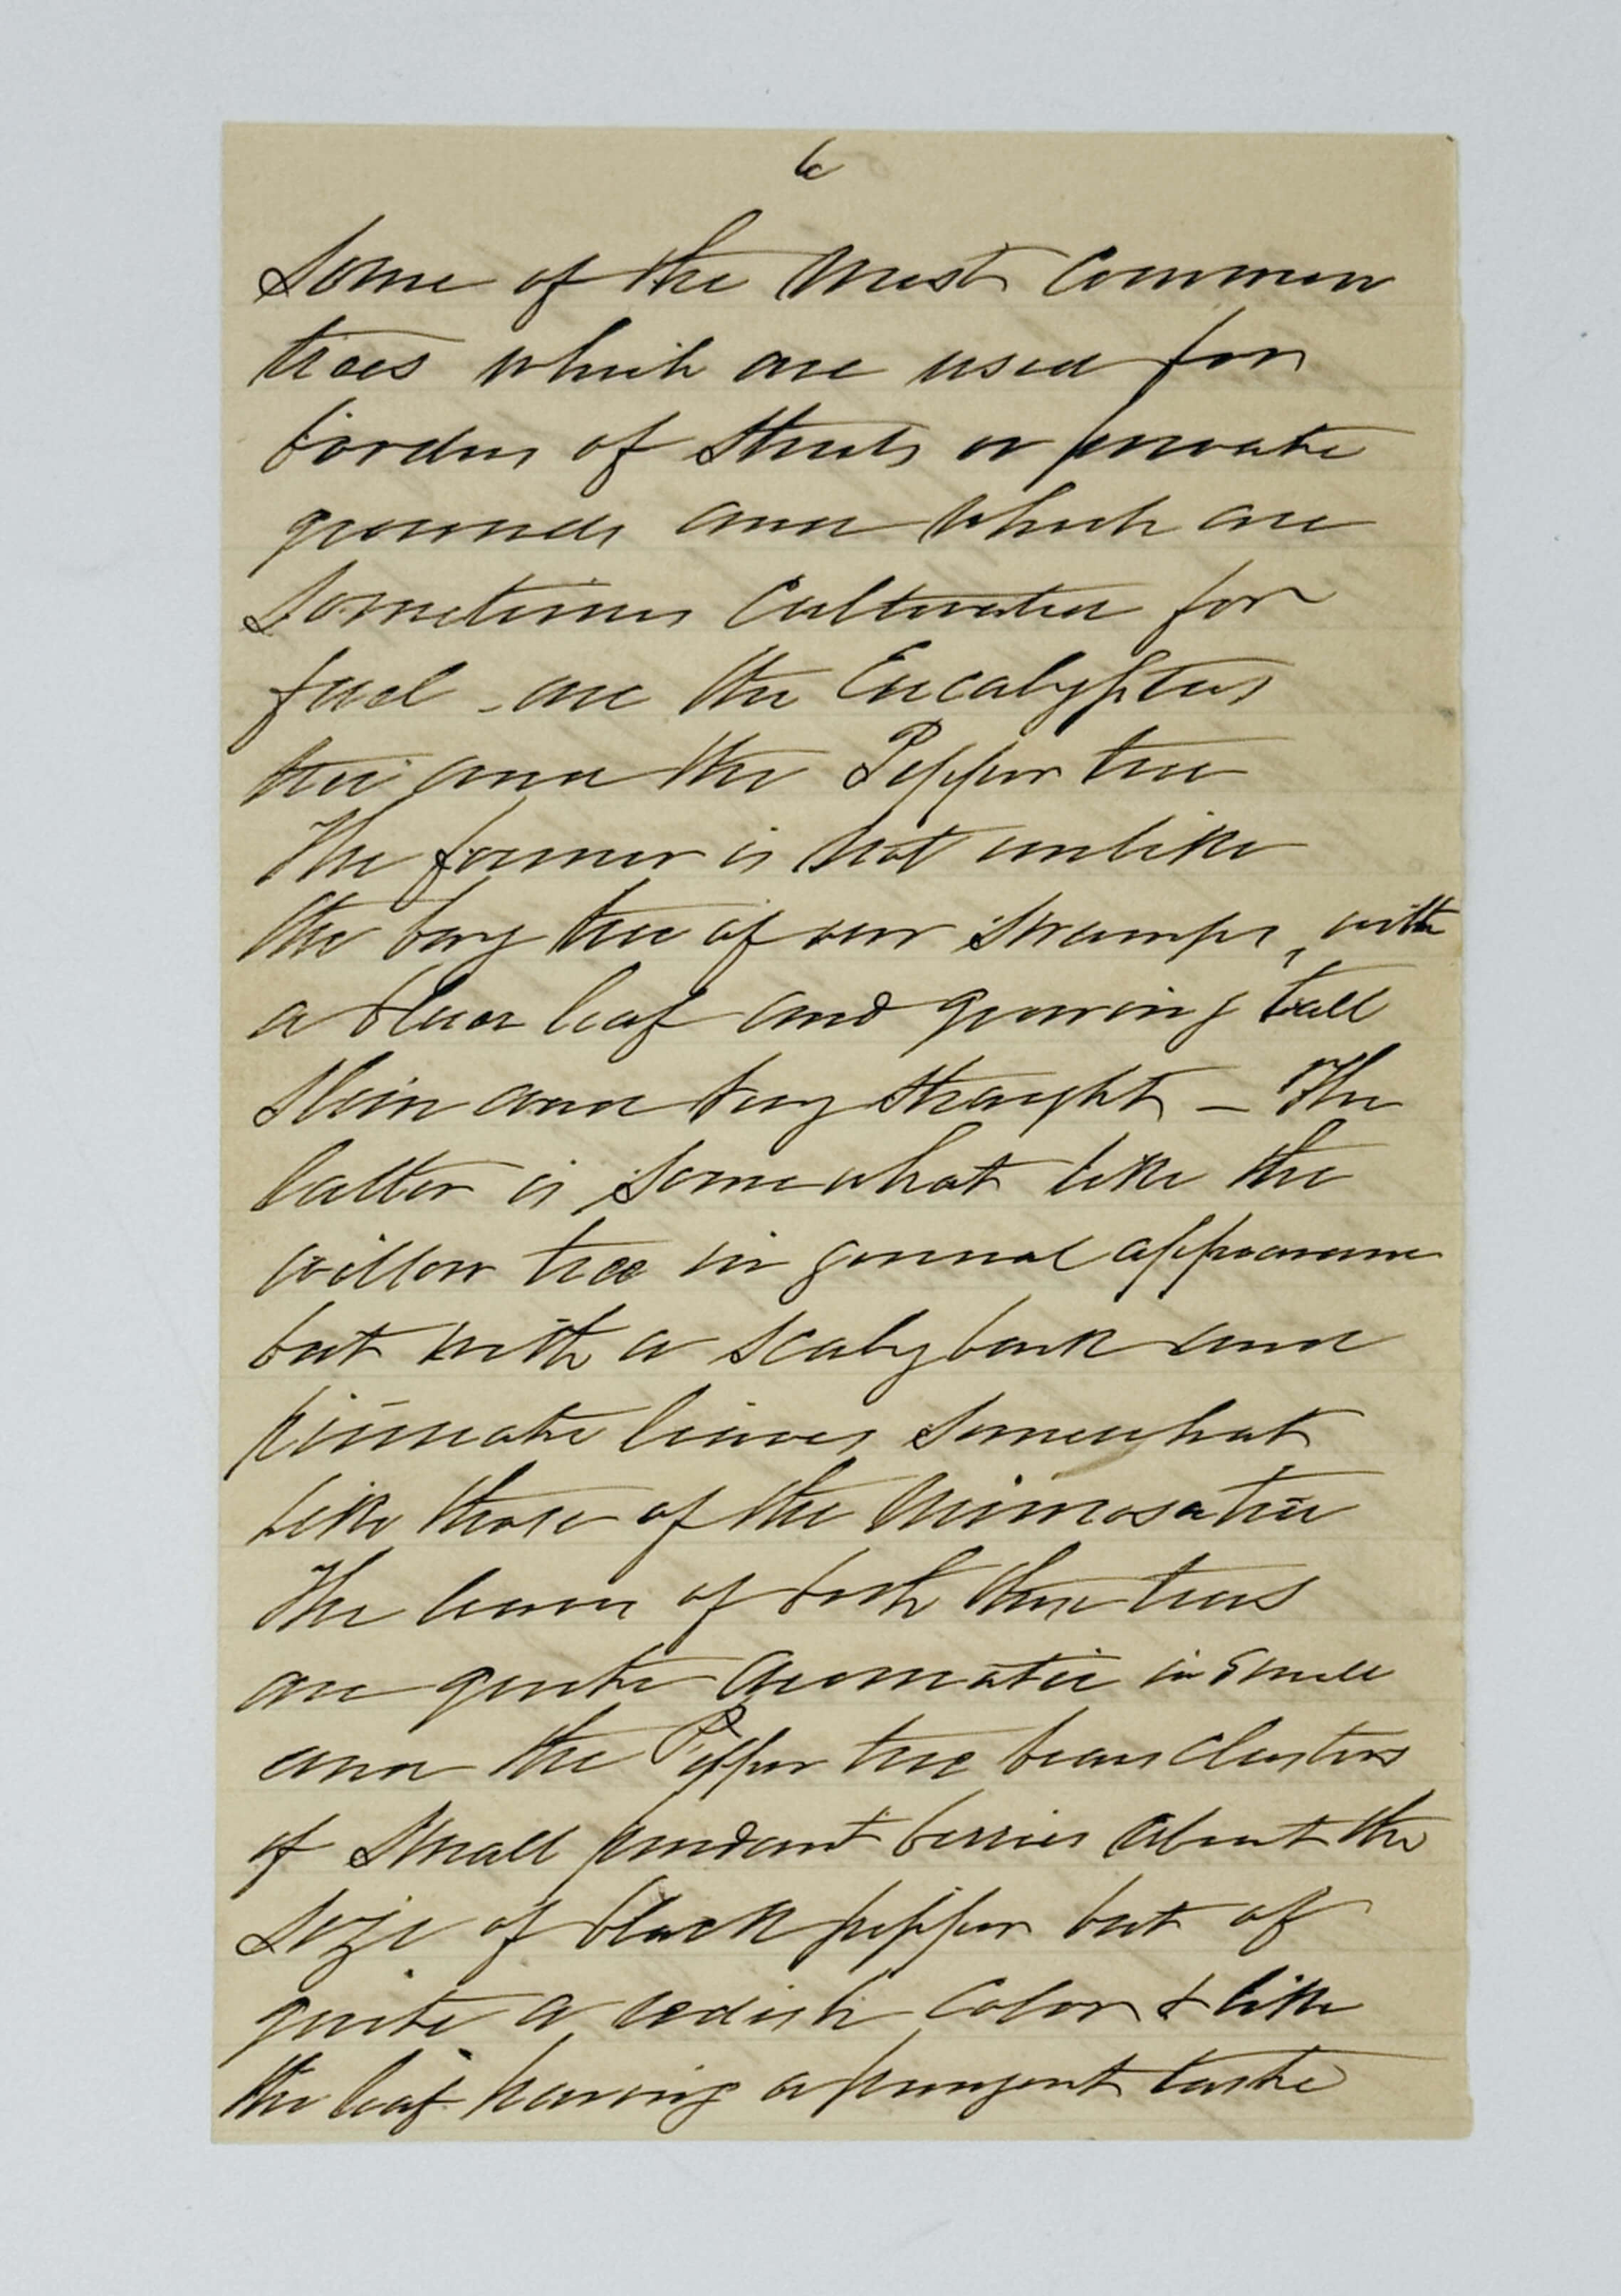 6
Some of the most common
trees which are used for
borders of streets or private
grounds and which are
sometimes cultivated for
fuel - are the Eucalyptus
tree and the Pepper tree
The former is not unlike
the bay tree of our swamps, with
a leaf and growing tall
slim and very straight — The
latter is somewhat like the
willow tree in general appearance
but with a scaly bark and
pinnate leaves somewhat
like those of the Mimosa tree
The leaves of both these trees
are quite aromatic in smell
and the Pepper tree bears clusters
of small pendant berries about the
size of black pepper but of
quite a redish color & like
the leaf having a pungent taste